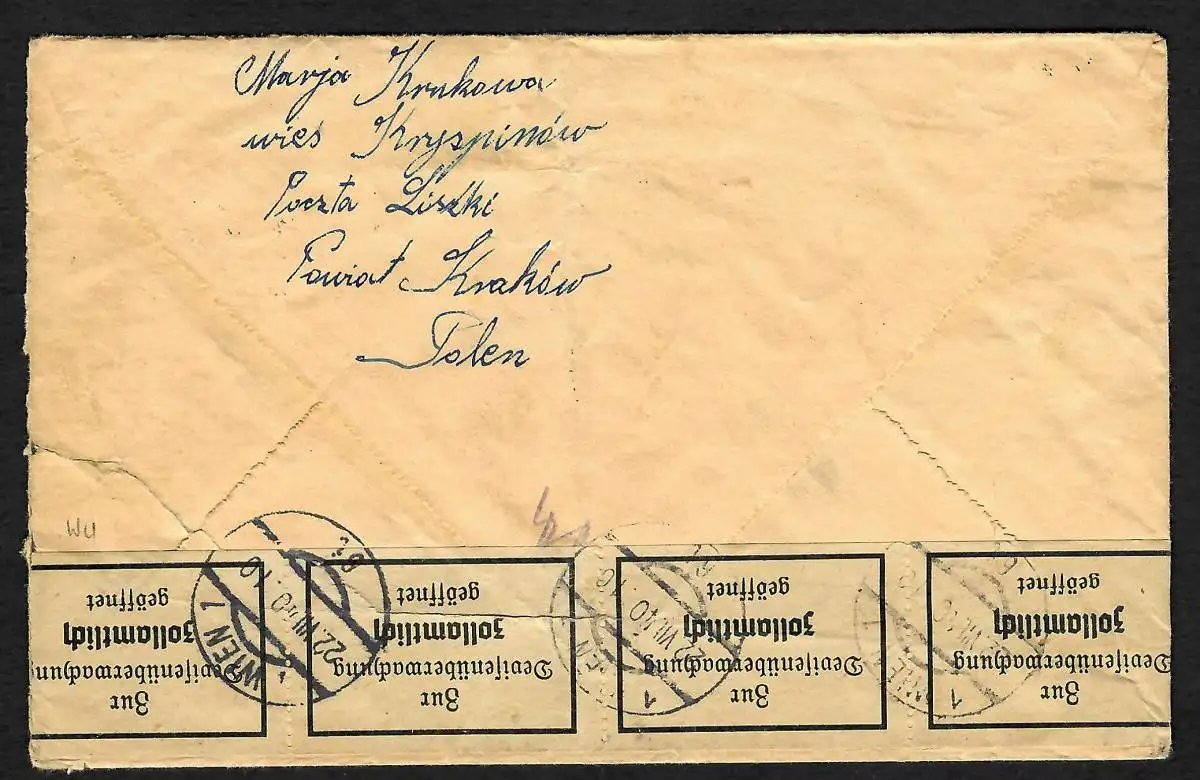 Marja Krukowa
wieś Kryspinów
Poczta Liszki
Powiat Kraków
Polen
W4
Zur
Devisenüberwachung
zollamtlich
geöffnet
Zur
Devisenüberwachung
zollamtlich
geöffnet
Zur
Devisenüberwachung
zollamtlich
geöffnet
Zur
Devisenüberwachung
zollamtlich
geöffnet
WIEN 1
22.VII.40